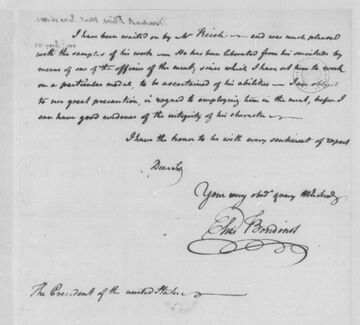 I have been waited on by Mr Reich and was much pleased
with the samples of his work — He has been liberated from his servitude by
means of one of the officers of the mint, since which I have set him to work
on a particular medal, to be ascertained of his abilities — I am
to use great precaution, in regard to employing him in the mint, before I
can have good evidence of the integrity of his character
I have the honor to be with every sentiment of respect
Dear Sir
Your very
Elias Boudinot
The President of the united States